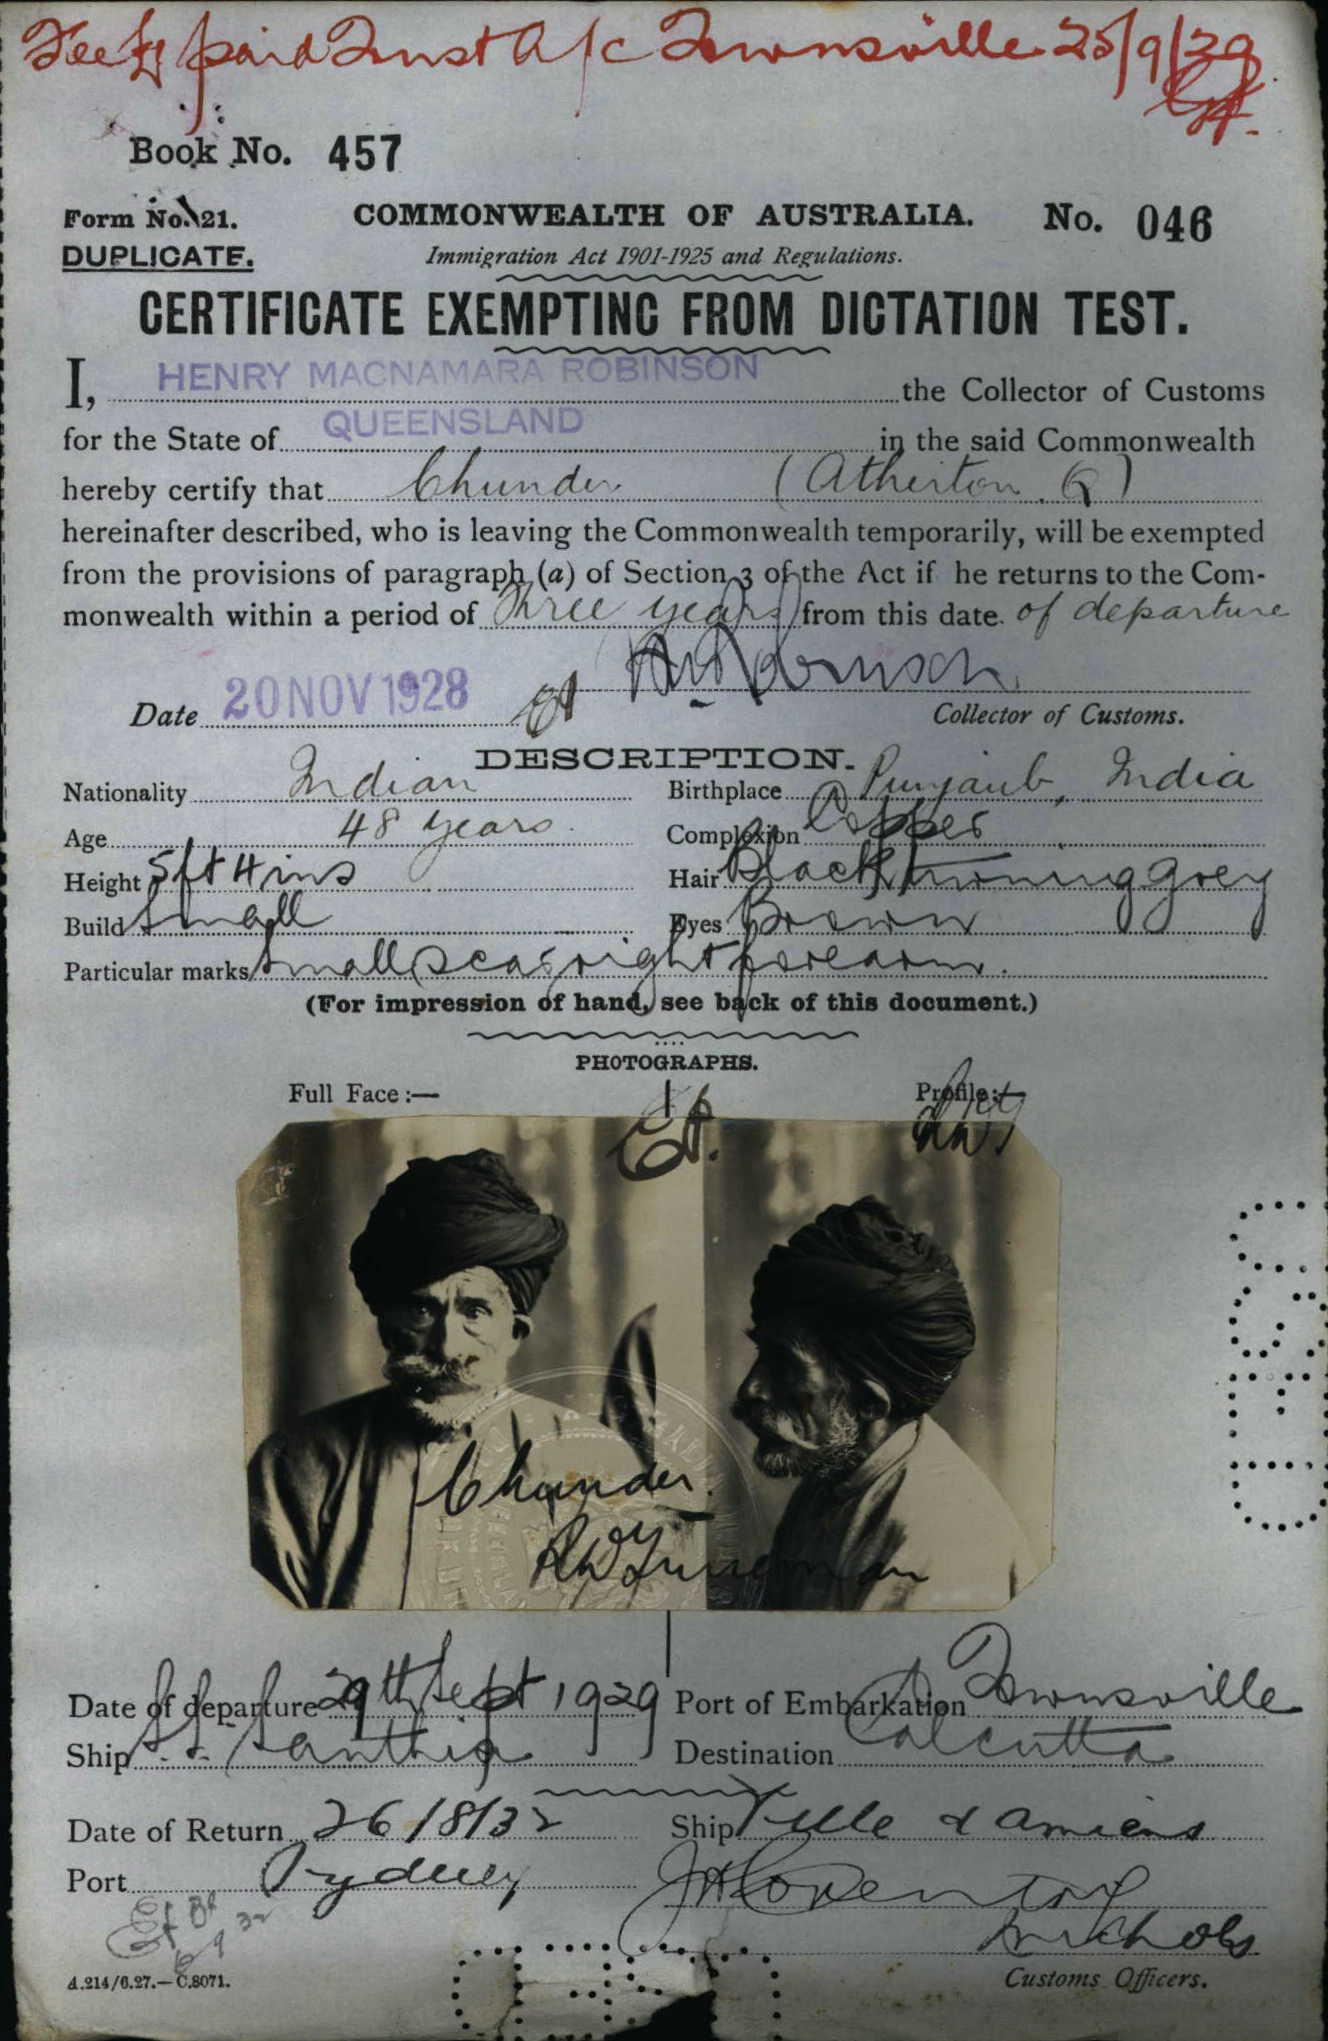 Fee £1 paid Trust A/c Townsville 25/9/29
Book No. 457
Form No. 21. COMMONWEALTH OF AUSTRALIA. No. 046
DUPLICATE. Immigration Act 1901-1925 and Regulations.
CERTIFICATE EXEMPTING FROM DICTATION TEST.
I, HENRY MACNAMARA ROBINSON the Collector of Customs
for the State of QUEENSLAND in the said Commonwealth
hereby certify that Chunder (Atherton. Q)
hereinafter described, who is leaving the Commonwealth temporarily, will be exempted
from the provisions of paragraph (a) of Section 3 of the Act if he returns to the Com-
monwealth within a period of Three years from this date. of departure
Date 20 NOV 1928 HM Robinson
Collector of Customs.
DESCRIPTION.
Nationality Indian Birthplace Punjaub, India
Age 48 years. Complexion Copper
Height 5ft 4ins Hair Black turning grey
Build Small Eyes Brown
Particular marks Small Scar right forearm.
(For impression of hand, see back of this document.)
PHOTOGRAPHS.
Full Face:— Profile:—
Chunder.
Date of departure 29th Sept 1929 Port of Embarkation Townsville
Ship S.S. Santhia Destination Calcutta
Date of Return 26/8/32 Ship Ville d'Amiens
Port Sydney
J H Coventry
Nichols
A.214/6.27.—C.8071. Customs Officers.